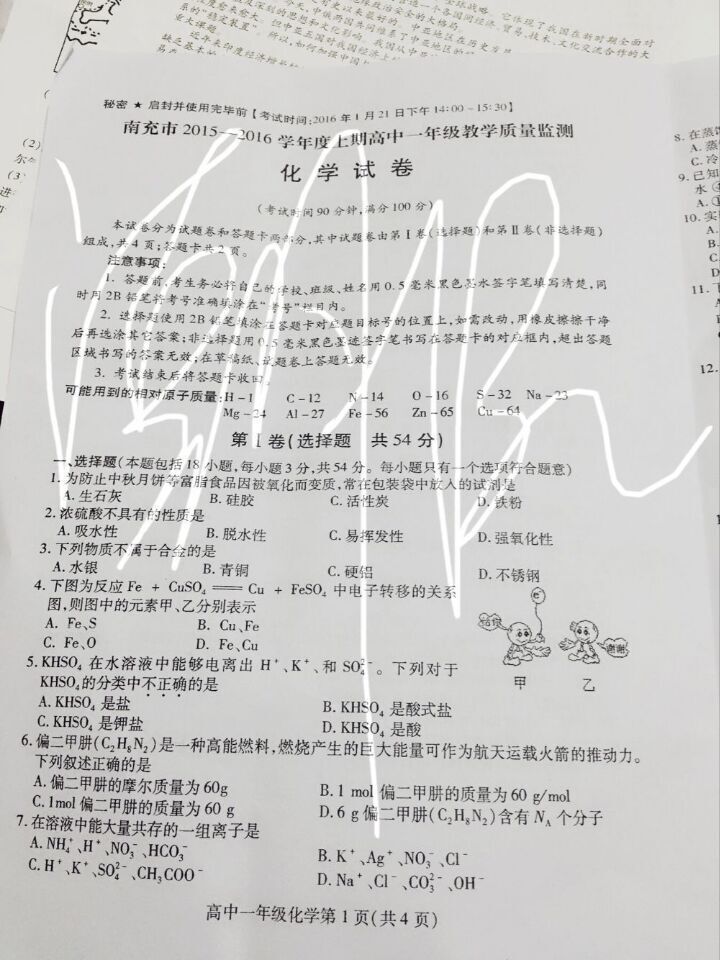 秘密 ★ 启封并使用完毕前【考试时间:2016年1月21日下午14:00~15:30】
南充市2015—2016学年度上期高中一年级教学质量监测
化学试卷
(考试时间90分钟,满分100分)
本试卷分为试题卷和答题卡两部分,其中试题卷由第Ⅰ卷(选择题)和第Ⅱ卷(非选择题)
组成,共4页;答题卡共2页。
注意事项:
1. 答题前,考生务必将自己的学校、班级、姓名用0.5毫米黑色墨水签字笔填写清楚,同
时用2B铅笔将考号准确填涂在“考号”栏目内。
2. 选择题使用2B铅笔填涂在答题卡对应题目标号的位置上,如需改动,用橡皮擦擦干净
后再选涂其它答案;非选择题用0.5毫米黑色墨迹签字笔书写在答题卡的对应框内,超出答题
区域书写的答案无效;在草稿纸、试题卷上答题无效。
3. 考试结束后将答题卡收回。
可能用到的相对原子质量:H-1 C-12 N-14 O-16 S-32 Na-23
Mg-24 Al-27 Fe-56 Zn-65 Cu-64
第Ⅰ卷(选择题 共54分)
一、选择题(本题包括18小题,每小题3分,共54分。每小题只有一个选项符合题意)
1.为防止中秋月饼等富脂食品因被氧化而变质,常在包装袋中放入的试剂是
A.生石灰 B.硅胶 C.活性炭 D.铁粉
2.浓硫酸不具有的性质是
A.吸水性 B.脱水性 C.易挥发性 D.强氧化性
3.下列物质不属于合金的是
A.水银 B.青铜 C.硬铝 D.不锈钢
4.下图为反应Fe + CuSO₄ == Cu + FeSO₄中电子转移的关系
图,则图中的元素甲、乙分别表示
A. Fe、S B. Cu、Fe
C. Fe、O D. Fe、Cu
给你 e⁻ 谢谢
甲 乙
5.KHSO₄在水溶液中能够电离出H⁺、K⁺、和SO₄²⁻。下列对于
KHSO₄的分类中不正确的是
A.KHSO₄是盐 B.KHSO₄是酸式盐
C.KHSO₄是钾盐 D.KHSO₄是酸
6.偏二甲肼(C₂H₈N₂)是一种高能燃料,燃烧产生的巨大能量可作为航天运载火箭的推动力。
下列叙述正确的是
A.偏二甲肼的摩尔质量为60g B.1 mol偏二甲肼的质量为60 g/mol
C.1mol偏二甲肼的质量为60 g D.6 g偏二甲肼(C₂H₈N₂)含有N_A个分子
7.在溶液中能大量共存的一组离子是
A.NH₄⁺、H⁺、NO₃⁻、HCO₃⁻ B.K⁺、Ag⁺、NO₃⁻、Cl⁻
C.H⁺、K⁺、SO₄²⁻、CH₃COO⁻ D.Na⁺、Cl⁻、CO₃²⁻、OH⁻
高中一年级化学第1页(共4页)
8.在蒸
A.蒸
C.冷
9.已知
水
10.实
A.
B.
C.
D.
11.
12.